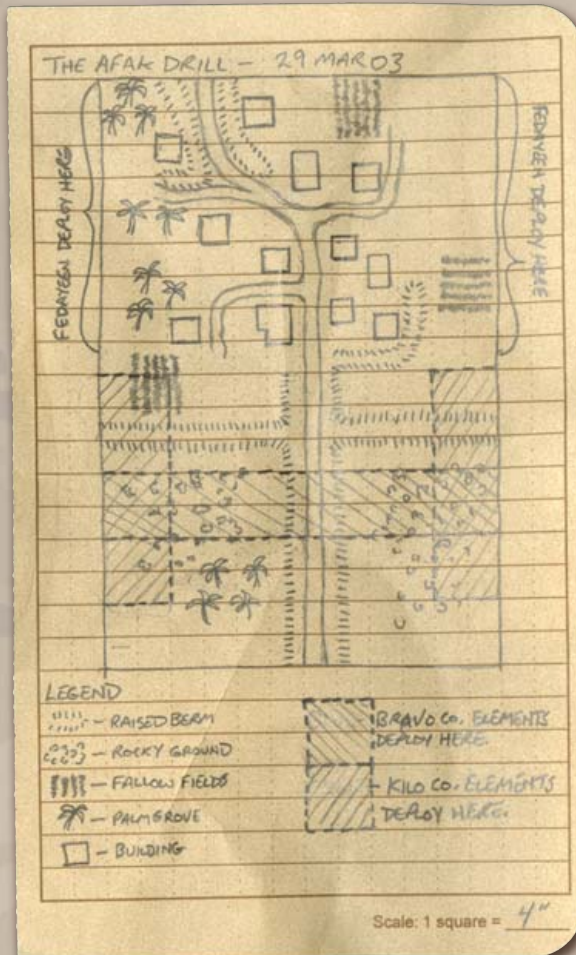 THE AFAK DRILL - 29 MAR 03
FEDAYEEN DEPLOY HERE
FEDAYEEN DEPLOY HERE
LEGEND
- RAISED BERM
- ROCKY GROUND
- FALLOW FIELDS
- PALM GROVE
- BUILDING
BRAVO CO. ELEMENTS
DEPLOY HERE.
- KILO CO. ELEMENTS
DEPLOY HERE.
Scale: 1 square = 4"